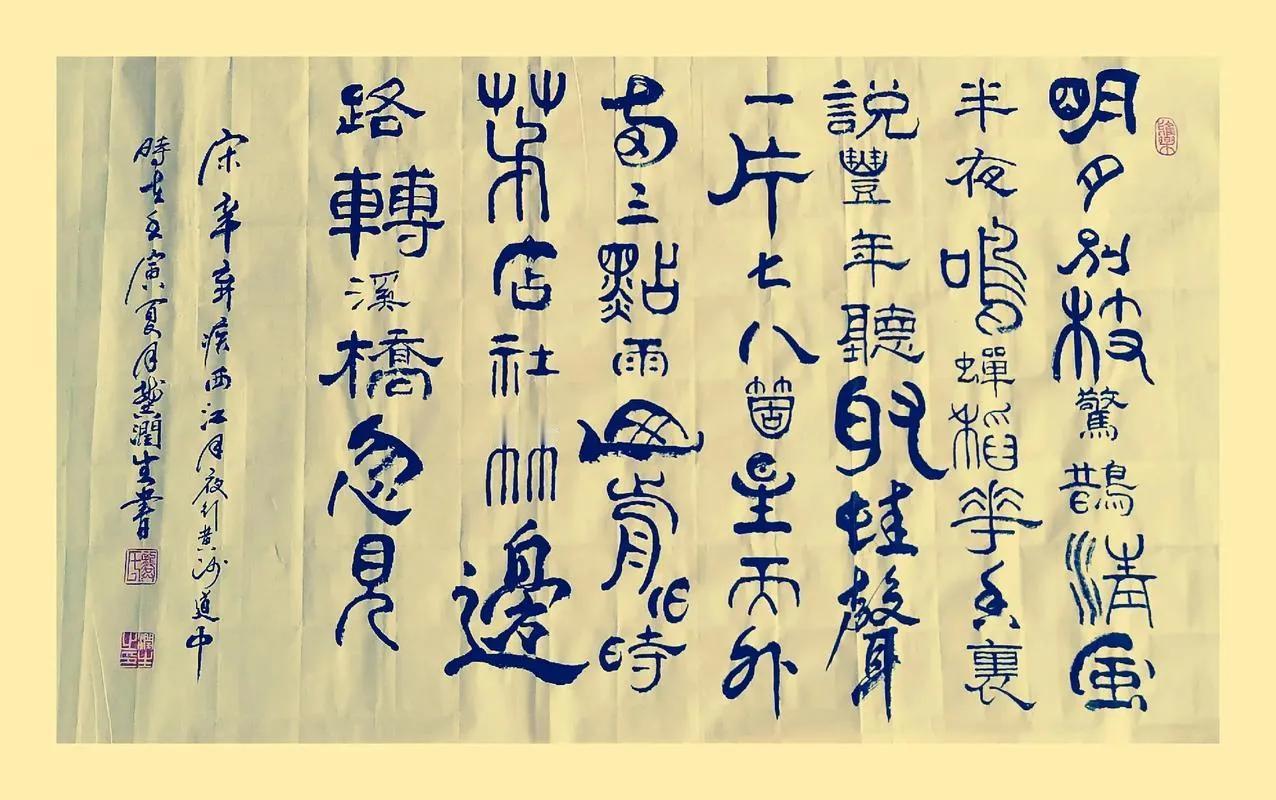 明月別枝驚鵲清風
半夜鳴蟬稻華香裏
説豐年聽取蛙聲
一片七八箇星天外
兩三點雨山前旧時
茅店社林邊
路轉溪橋忽見
宋辛弃疾西江月夜行黄沙道中
時在壬寅夏月潤生書
潤生之印